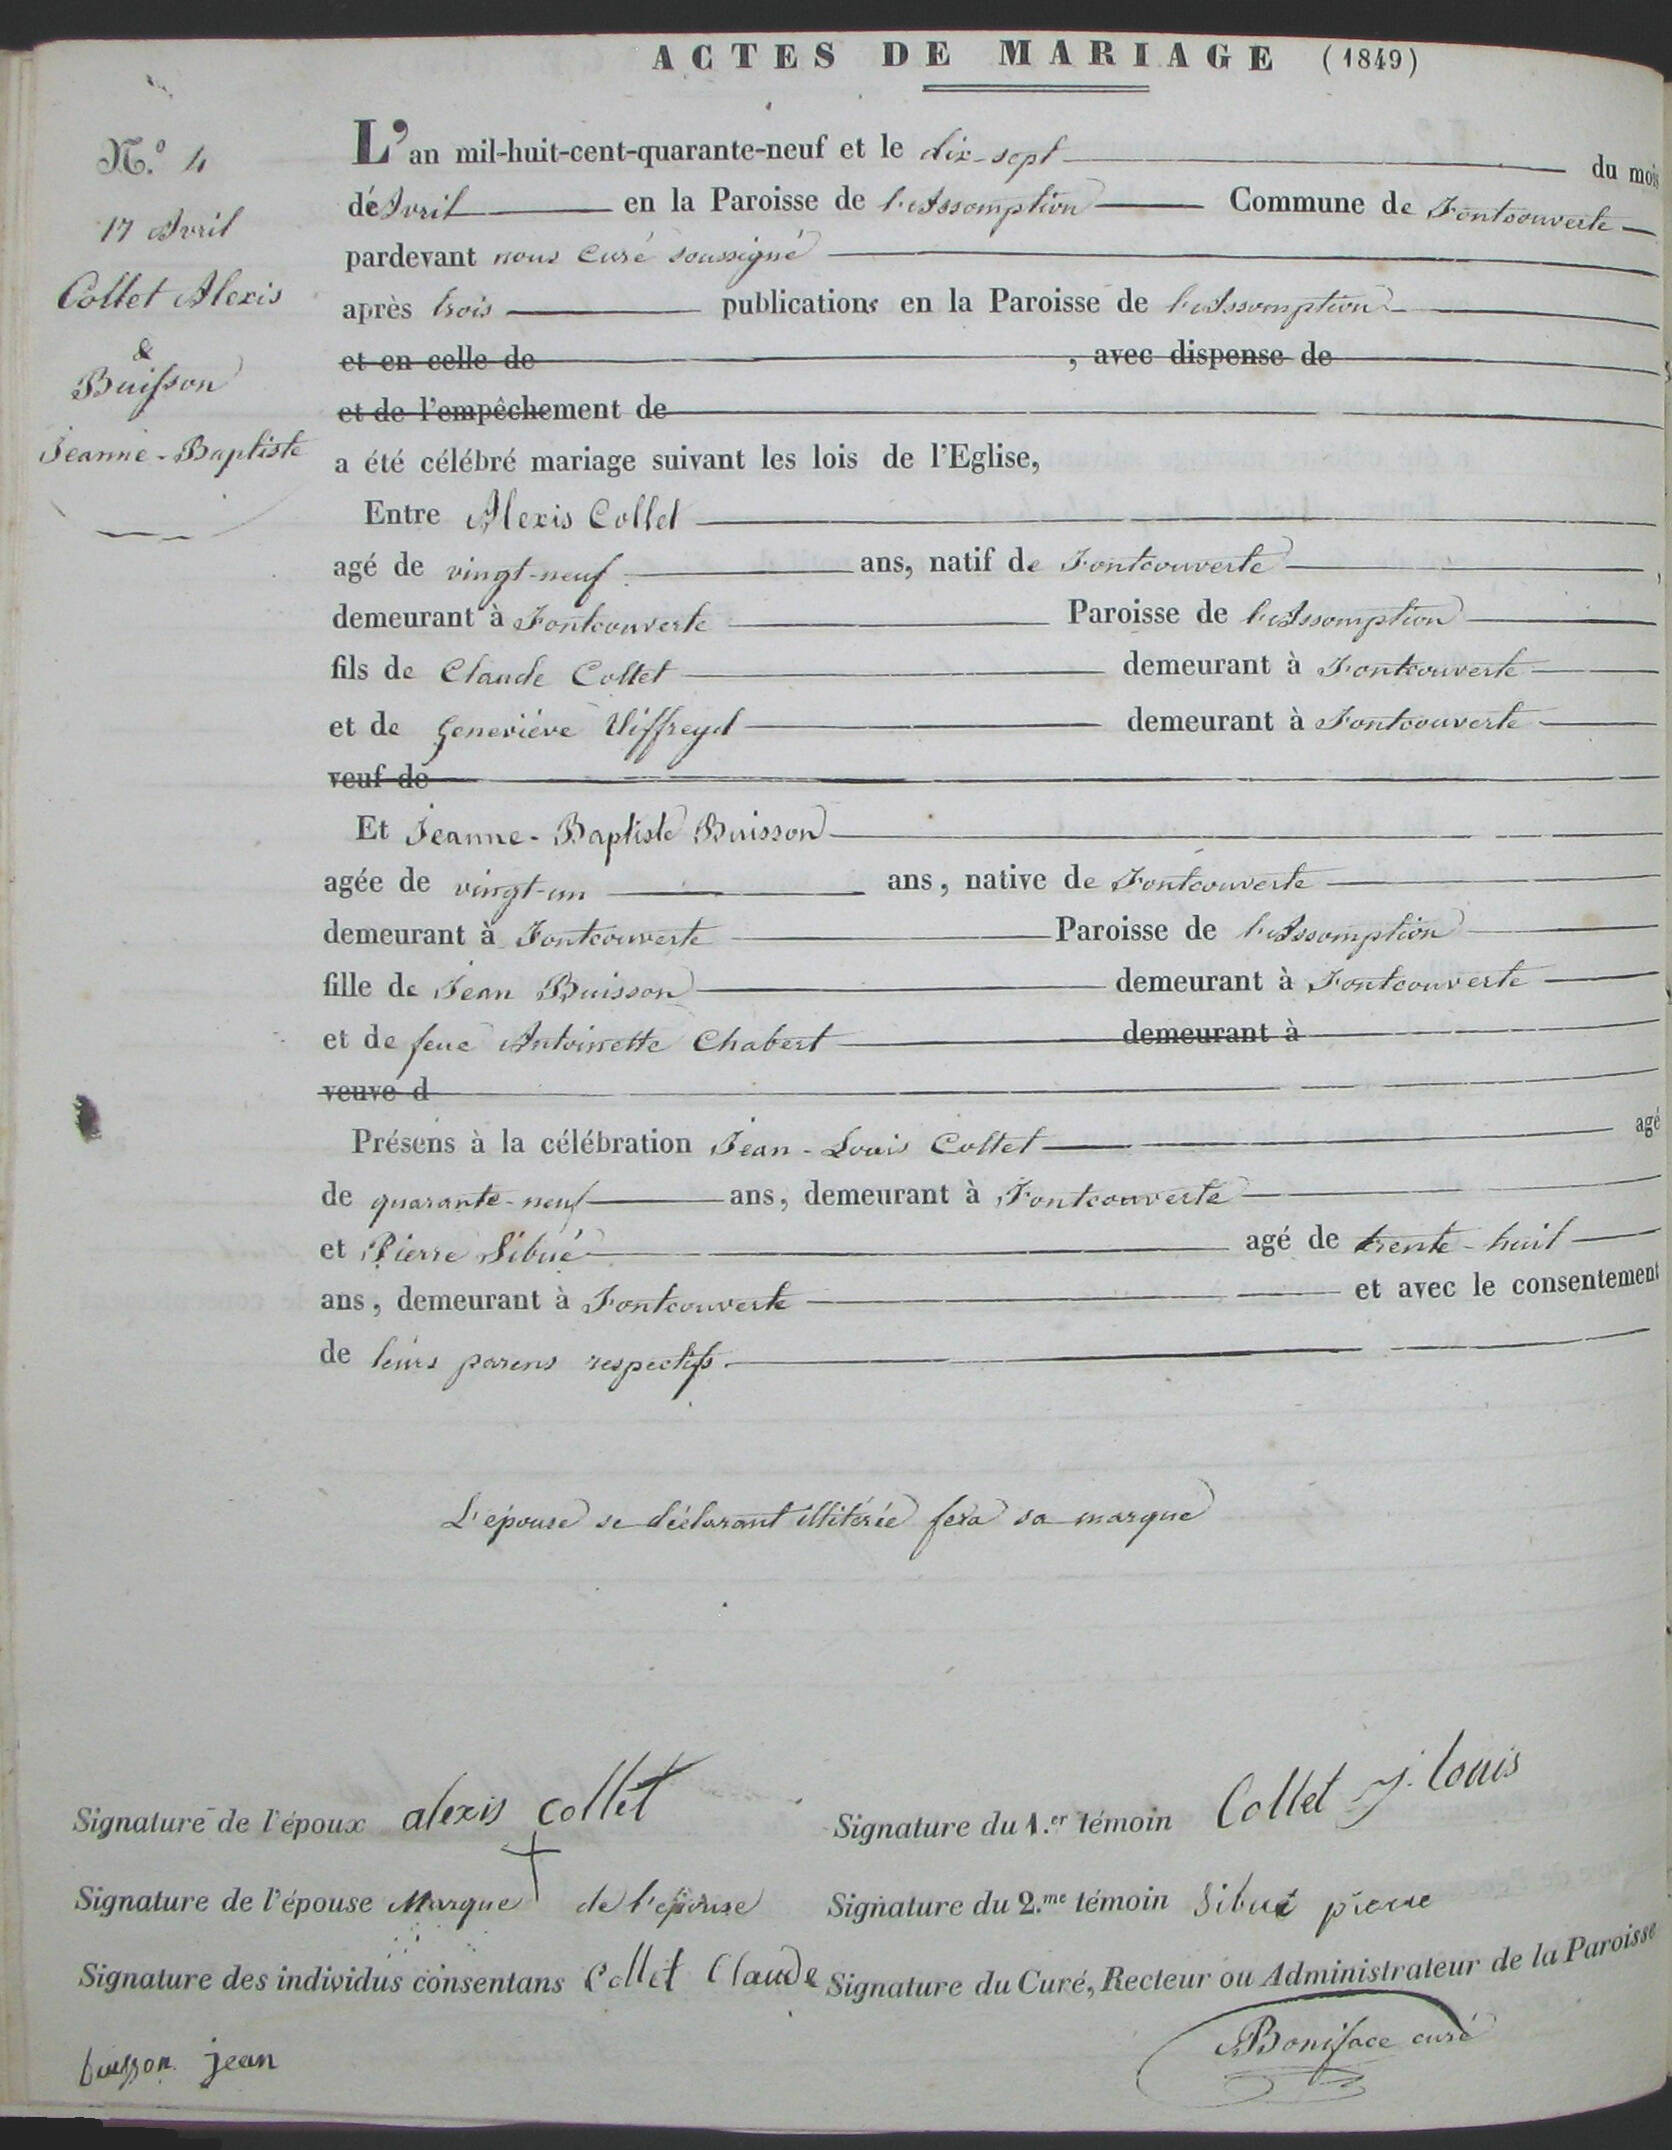 ACTES DE MARIAGE (1849)
N.º 4
17 Avril
Collet Alexis
&
Buisson
Jeanne-Baptiste
L'an mil-huit-cent-quarante-neuf et le dix-sept du mois
de Avril en la Paroisse de l'Assomption Commune de Fontcouverte
pardevant nous curé soussigné
après trois publications en la Paroisse de l'Assomption
et en celle de , avec dispense de
et de l'empêchement de
a été célébré mariage suivant les lois de l'Eglise,
Entre Alexis Collet
agé de vingt-neuf ans, natif de Fontcouverte ,
demeurant à Fontcouverte Paroisse de l'Assomption
fils de Claude Collet demeurant à Fontcouverte
et de Geneviève Viffreyd demeurant à Fontcouverte
veuf de
Et Jeanne-Baptiste Buisson
agée de vingt-un ans, native de Fontcouverte
demeurant à Fontcouverte Paroisse de l'Assomption
fille de Jean Buisson demeurant à Fontcouverte
et de feue Antoinette Chabert demeurant à
veuve d
Présens à la célébration Jean-Louis Collet agé
de quarante-neuf ans, demeurant à Fontcouverte
et Pierre Sibué agé de trente-huit
ans, demeurant à Fontcouverte et avec le consentement
de leurs parens respectifs.
L'épouse se déclarant illitérée fera sa marque
Signature de l'époux alexis collet
Signature du 1.er témoin Collet J. louis
Signature de l'épouse Marque de l'épouse
Signature du 2.me témoin Sibué pierre
Signature des individus consentans Collet Claude
Signature du Curé, Recteur ou Administrateur de la Paroisse
buisson jean
Boniface curé